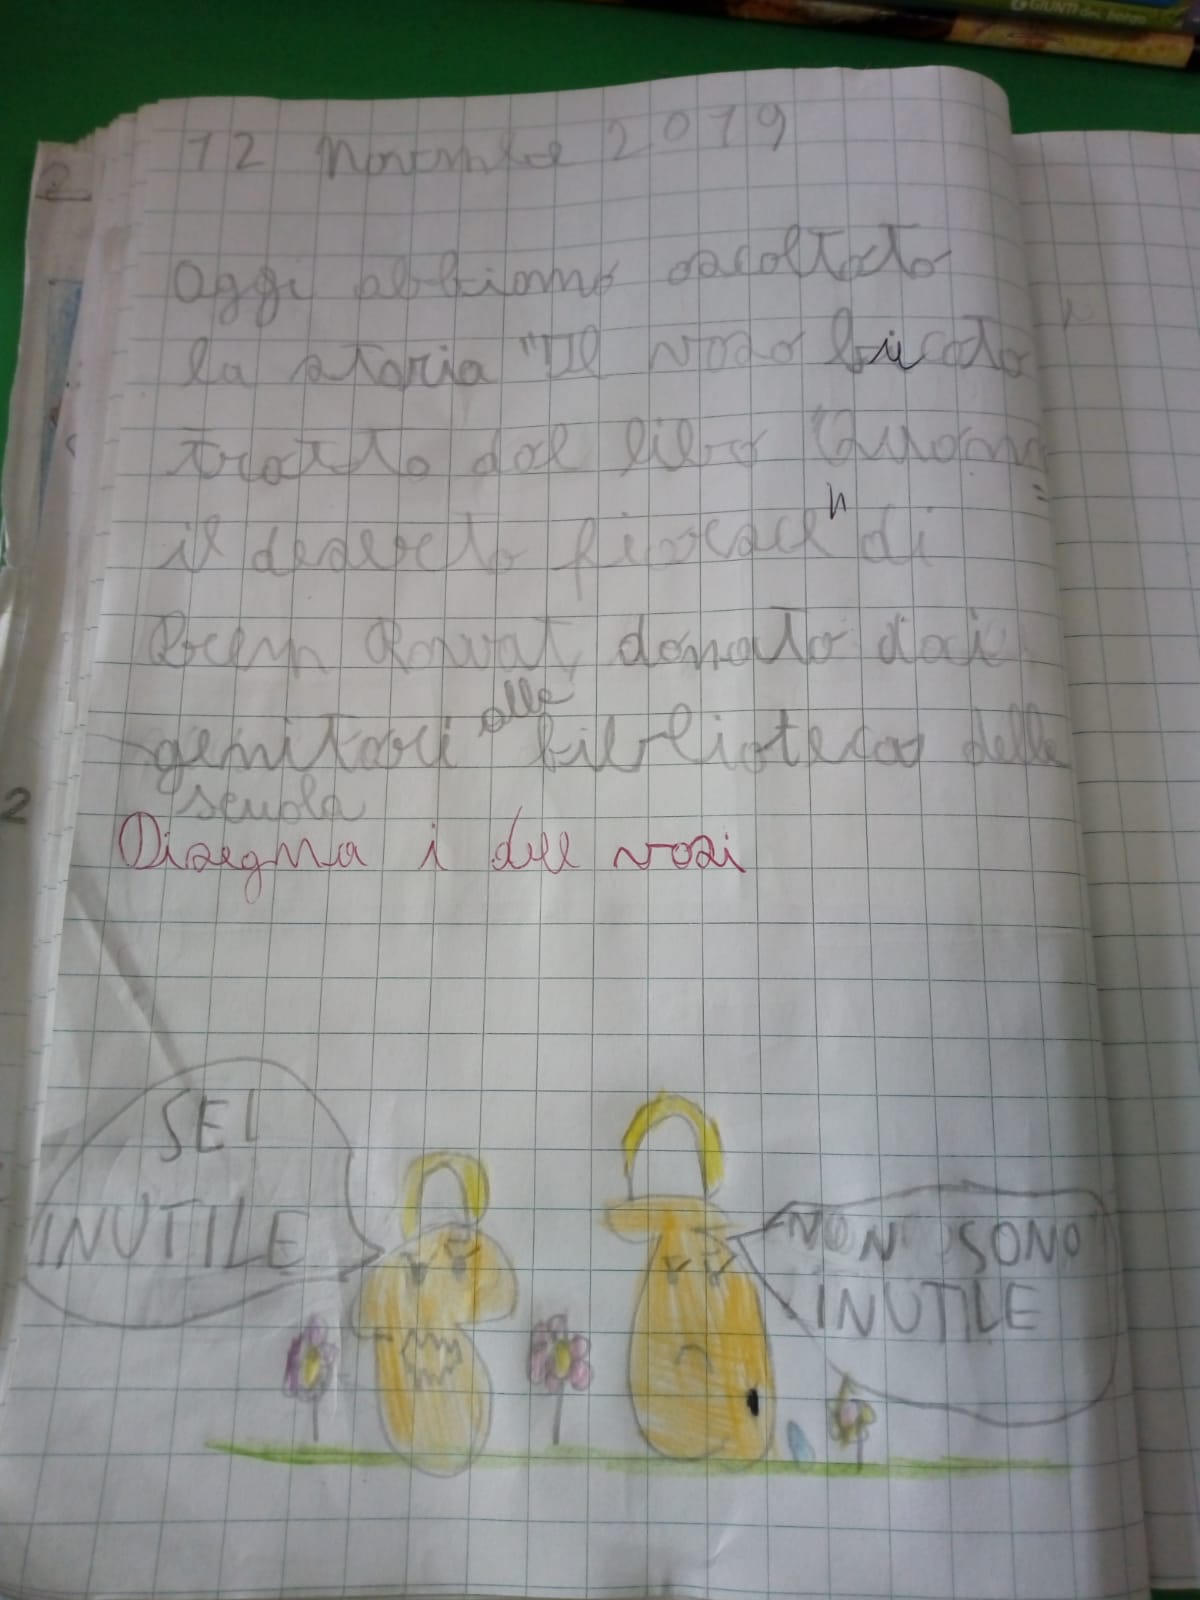 GIUNTI
2
12 novembre 2019
Oggi abbiamo ascoltato
la storia "Il vaso bucato
tratto dal libro "Quan
=
il deserto fiorisce" di
Prem Rawat, donato dai
genitori alla biblioteca della
scuola
2
Disegna i due vasi
SEI
INUTILE
NON SONO
INUTILE